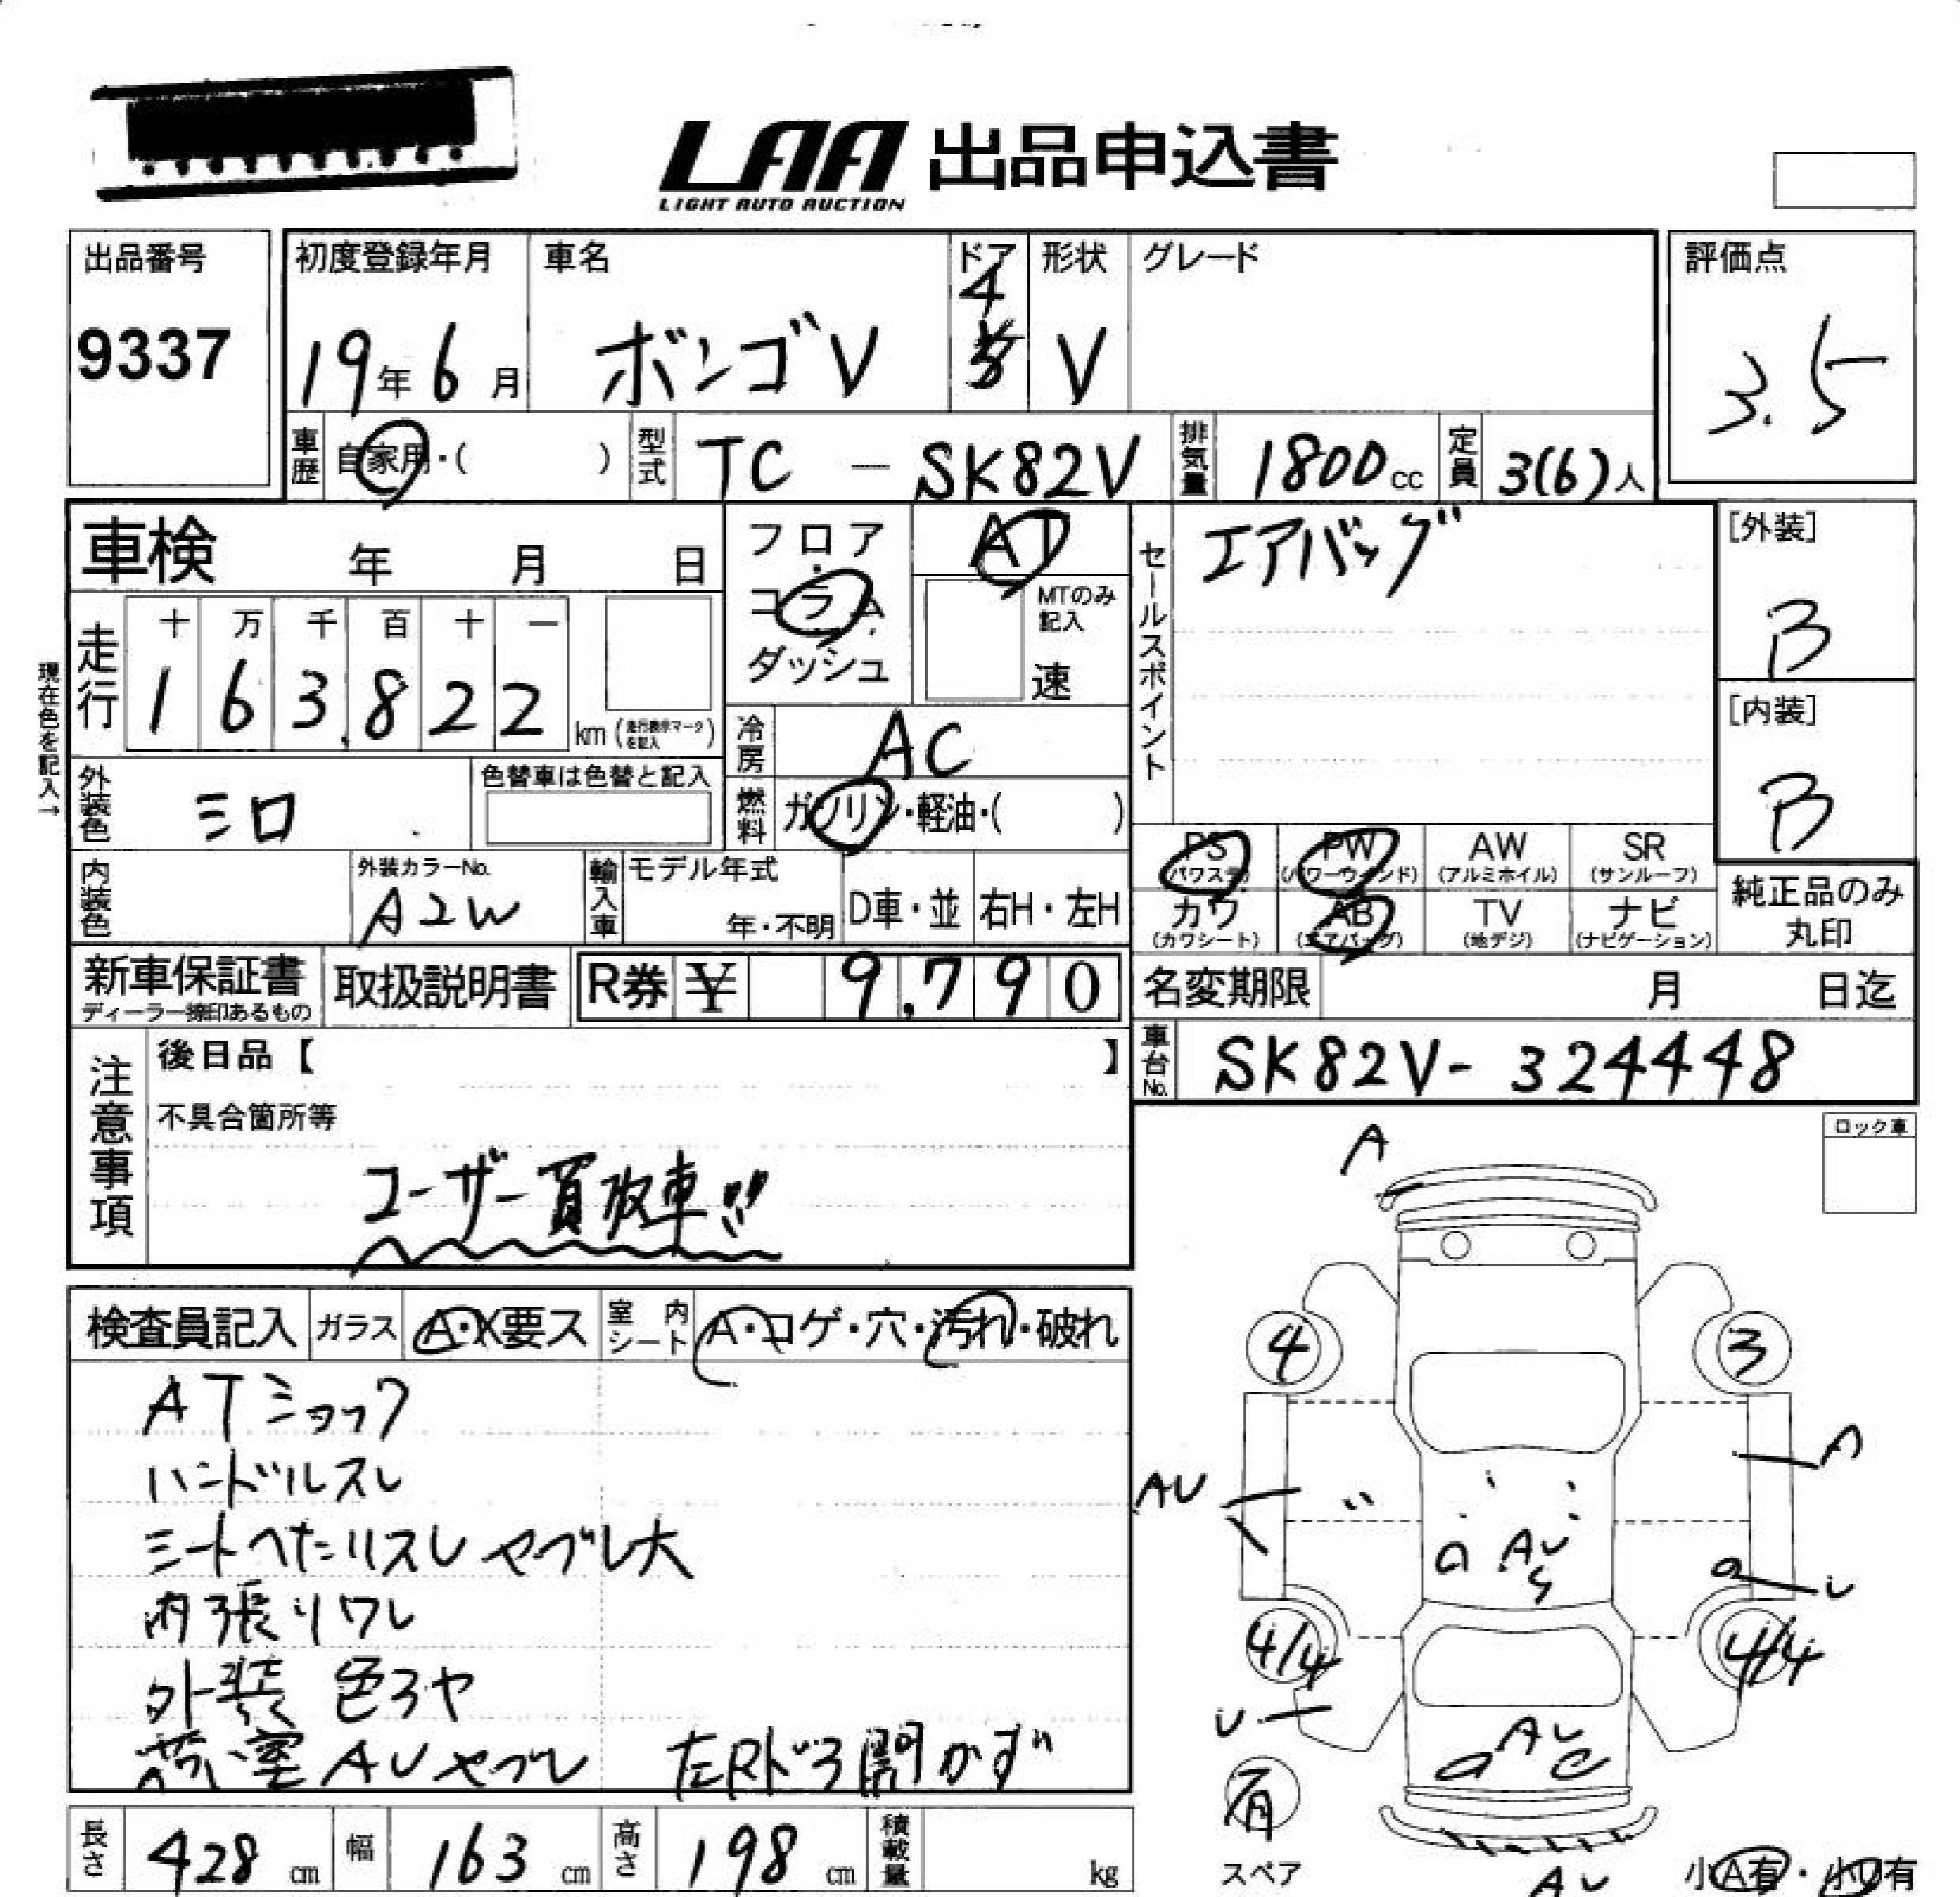 LAA 出品申込書
LIGHT AUTO AUCTION
出品番号
9337
初度登録年月
19年6月
車名
ボンゴV
ドア
4
形状
V
グレード
評価点
3.5
車歴
自家用・( )
型式
TC - SK82V
排気量
1800cc
定員
3(6)人
車検 年 月 日
フロア・コラム・ダッシュ
AT
MTのみ記入
速
セールスポイント
エアバッグ
[外装]
B
[内装]
B
現在色を記入→
走行
十 万 千 百 十 一
1 6 3.8 2 2 km (走行表示マークを記入)
冷房
AC
外装色
シロ
色替車は色替と記入
燃料
ガソリン・軽油・( )
PS (パワステ)
PW (パワーウィンド)
AW (アルミホイル)
SR (サンルーフ)
内装色
外装カラーNo.
A2W
輸入車
モデル年式
年・不明
D車・並
右H・左H
カワ (カワシート)
AB (エアバッグ)
TV (地デジ)
ナビ (ナビゲーション)
純正品のみ丸印
新車保証書
ディーラー捺印あるもの
取扱説明書
R券 ¥ 9,790
名変期限 月 日迄
注意事項
後日品【 】
車台No.
SK82V-324448
不具合箇所等
ユーザー買取車!!
ロック車
A
検査員記入
ガラス
A・X要ス
室内シート
A・コゲ・穴・汚れ・破れ
ATショック
ハンドルスレ
シートへたりスレ ヤブレ大
内張りワレ
外装 色ボヤ
荷室AUヤブレ 左Rドア開かず
4
3
AU
A
a AU
S
a U
4/4
4/4
U
AU
有
スペア
AU
小A有・小U有
長さ
428 cm
幅
163 cm
高さ
198 cm
積載量
kg